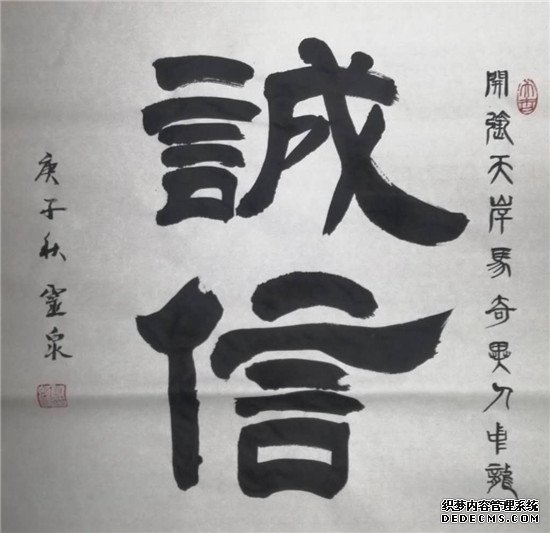 開強天岸馬奇異人中龍
誠信
庚子秋泉
织梦内容管理系统
DEDECMS.COM